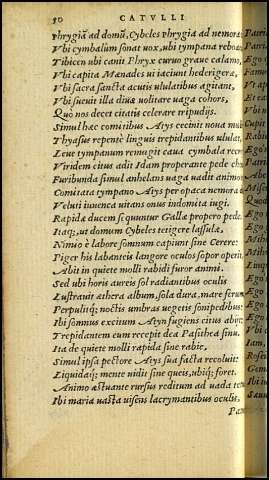 50 CATVLLI
Phrygiã ad domũ, Cybeles phrygia ad nemora
Vbi cymbalũm sonat uox, ubi tympana reboa
Tibicen ubi canit Phryx curuo graue calamo,
Vbi capita Mænades ui iaciunt hederigeræ,
Vbi sacra sancta acutis ululatibus agitant,
Vbi sueuit illa diuæ uolitare uaga cohors,
Quò nos decet citatis celerare tripudijs.
Simul hæc comitibus Atys cecinit noua mu
Thyasus repentè linguis trepidantibus ululat,
Leue tympanum remugit caua cymbala recre
Viridem citus adit Idam properante pede cho
Furibunda simul anhelans uaga uadit animo
Comitata tympano Atys per opaca nemora d
Veluti iuuenca uitans onus indomita iugi.
Rapidæ ducem sequuntur Gallæ propero pede.
Itaq; ut domum Cybeles tetigere lassulæ,
Nimio è labore somnum capiunt sine Cerere:
Piger his labanteis langore oculos sopor operit
Abit in quiete molli rabidi furor animi.
Sed ubi horis aureis sol radiantibus oculis
Lustrauit æthera album, sola dura, mare ferum
Perpulitq; noctis umbras uegetis sonipedibus
Ibi somnus excitum Atyn fugiens citus abije
Trepidantem eum recepit dea Pasithea sinu.
Ita de quiete molli rapida sine rabie,
Simul ipsa pectore Atys sua facta recoluit:
Liquidaq; mente uidit sine queis, ubiq; foret.
Animo æstuante rursus reditum ad uada te
Ibi maria uasta uisens lacrymantibus oculis,
Pa
Patri
Ego
Famu
Vt a
Et ea
Vbi
Cupi
Rabi
Ego
Patri
Abe
Mise
Ego
Ego
Ego
Mih
Mih
Lin
Ego
Ego
Ego
Ego
Iam
Ro
Gem
Ibi
Læ